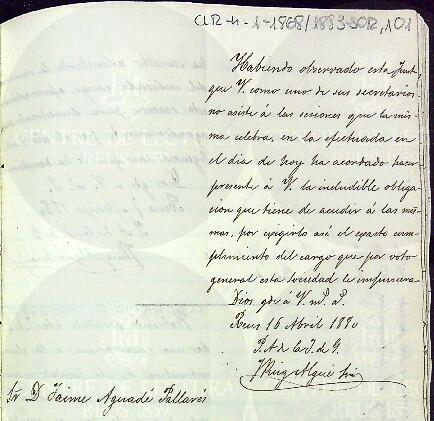 CLR-4-1-1868/1893-SOR,101
Habiendo observado esta Junt
que V. como uno de sus secretarios
no asiste á las sesiones que la mis
ma celebra, en la efectuada en
el dia de hoy ha acordado hacer
presente á V. la ineludible obliga
cion que tiene de acudir á las mis
mas, por exigirlo así el exacto cum
plimiento del cargo que por voto
general esta sociedad le impusiera
Dios gde á V. m.s a.s
Reus 16 Abril 1890
P. A. de la J. de G.
Sr D Jaime Aguadé Pallarés
CENTRE DE LECTURA
REUS 1859